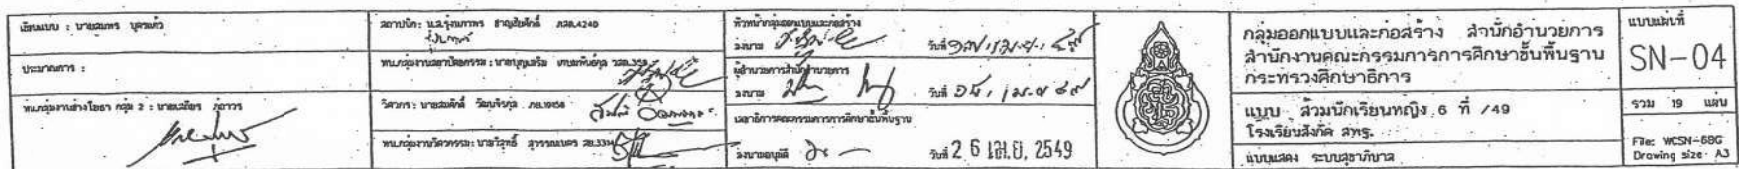 เขียนแบบ : นายสมพร บุตรแก้ว
ประมาณการ :
หน.กลุ่มงานช่างโยธา กลุ่ม 2 : นายเสถียร
สถาปนิก: น.ส.รุ่งนภาพร ชาญชัยศักดิ์ ภสถ.4240
หน.กลุ่มงานสถาปัตยกรรม : นายบุญเสริม
วิศวกร: นายสมศักดิ์
หน.กลุ่มงานวิศวกรรม: นายวิสุทธิ์
หัวหน้ากลุ่มออกแบบและก่อสร้าง
ลงนาม วันที่
ผู้อำนวยการสำนักอำนวยการ
ลงนาม วันที่
เลขาธิการคณะกรรมการการศึกษาขั้นพื้นฐาน
ลงนามอนุมัติ วันที่ 26 เม.ย. 2549
กลุ่มออกแบบและก่อสร้าง สำนักอำนวยการ
สำนักงานคณะกรรมการการศึกษาขั้นพื้นฐาน
กระทรวงศึกษาธิการ
แบบ ส้วมนักเรียนหญิง 6 ที่ /49
โรงเรียนสังกัด สพฐ.
แบบแสดง ระบบสุขาภิบาล
แบบแผ่นที่
SN-04
รวม 19 แผ่น
File: WCSN-68G
Drawing size: A3